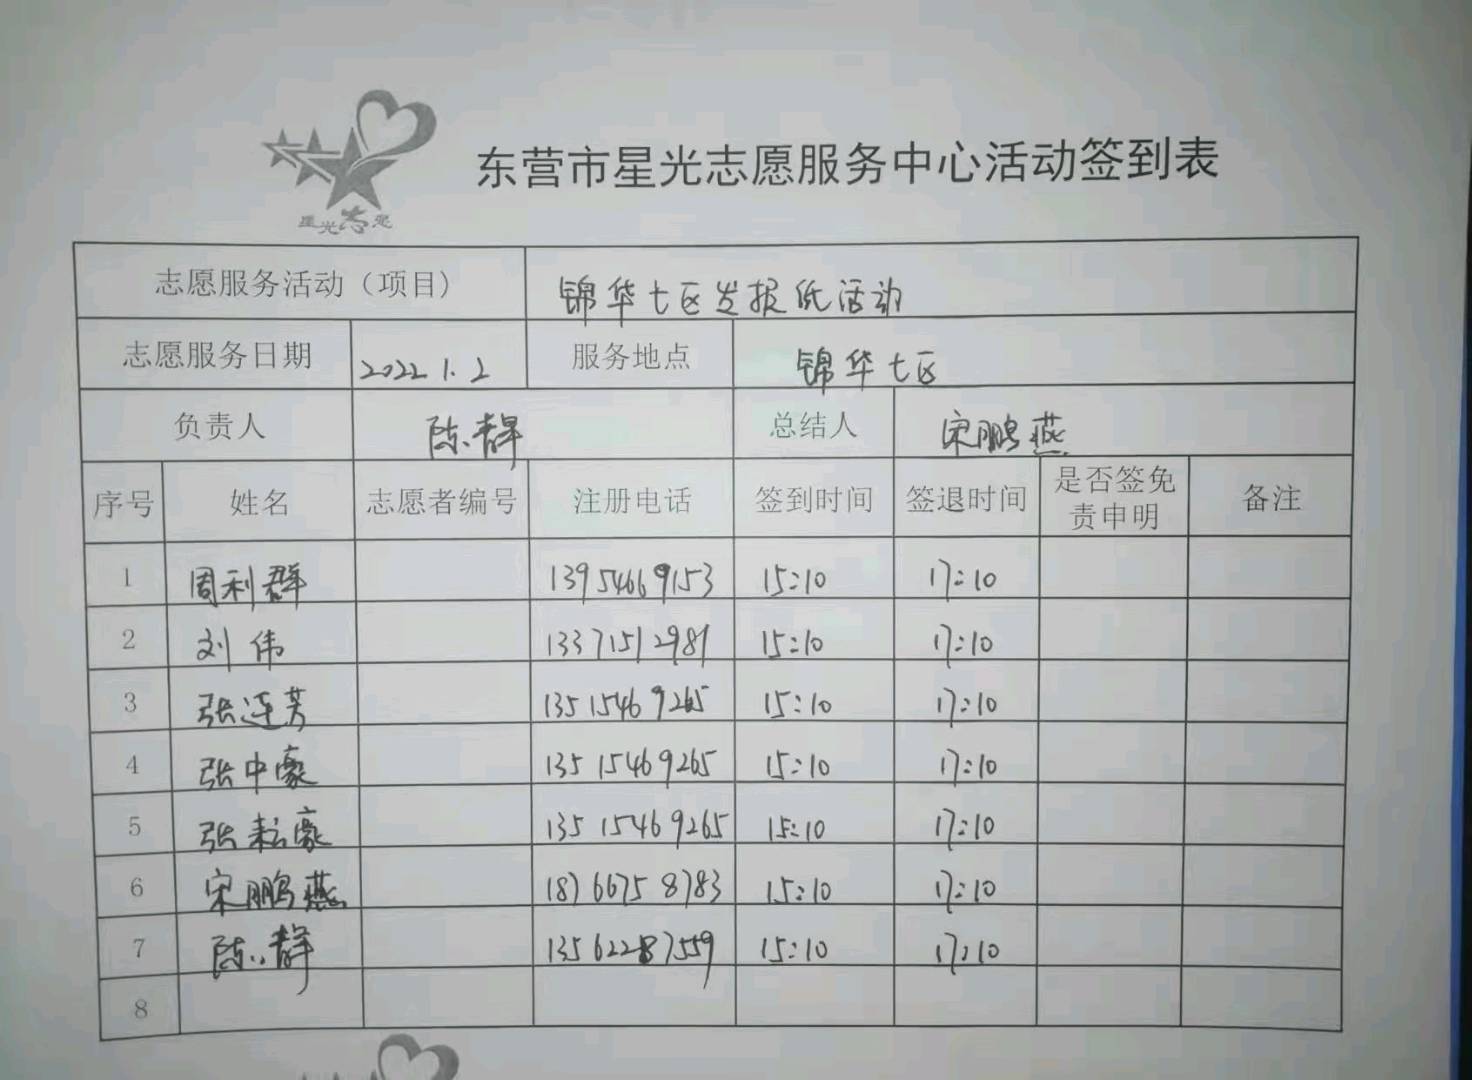 星光志愿
东营市星光志愿服务中心活动签到表
志愿服务活动（项目） 锦华七区发报纸活动
志愿服务日期 2022.1.2 服务地点 锦华七区
负责人 陈静 总结人 宋鹏燕
序号 姓名 志愿者编号 注册电话 签到时间 签退时间 是否签免责申明 备注
1 周利群 13954669153 15:10 17:10
2 刘伟 13371512981 15:10 17:10
3 张连芳 13515469265 15:10 17:10
4 张中豪 13515469265 15:10 17:10
5 张耘豪 13515469265 15:10 17:10
6 宋鹏燕 18766758783 15:10 17:10
7 陈静 13562287559 15:10 17:10
8